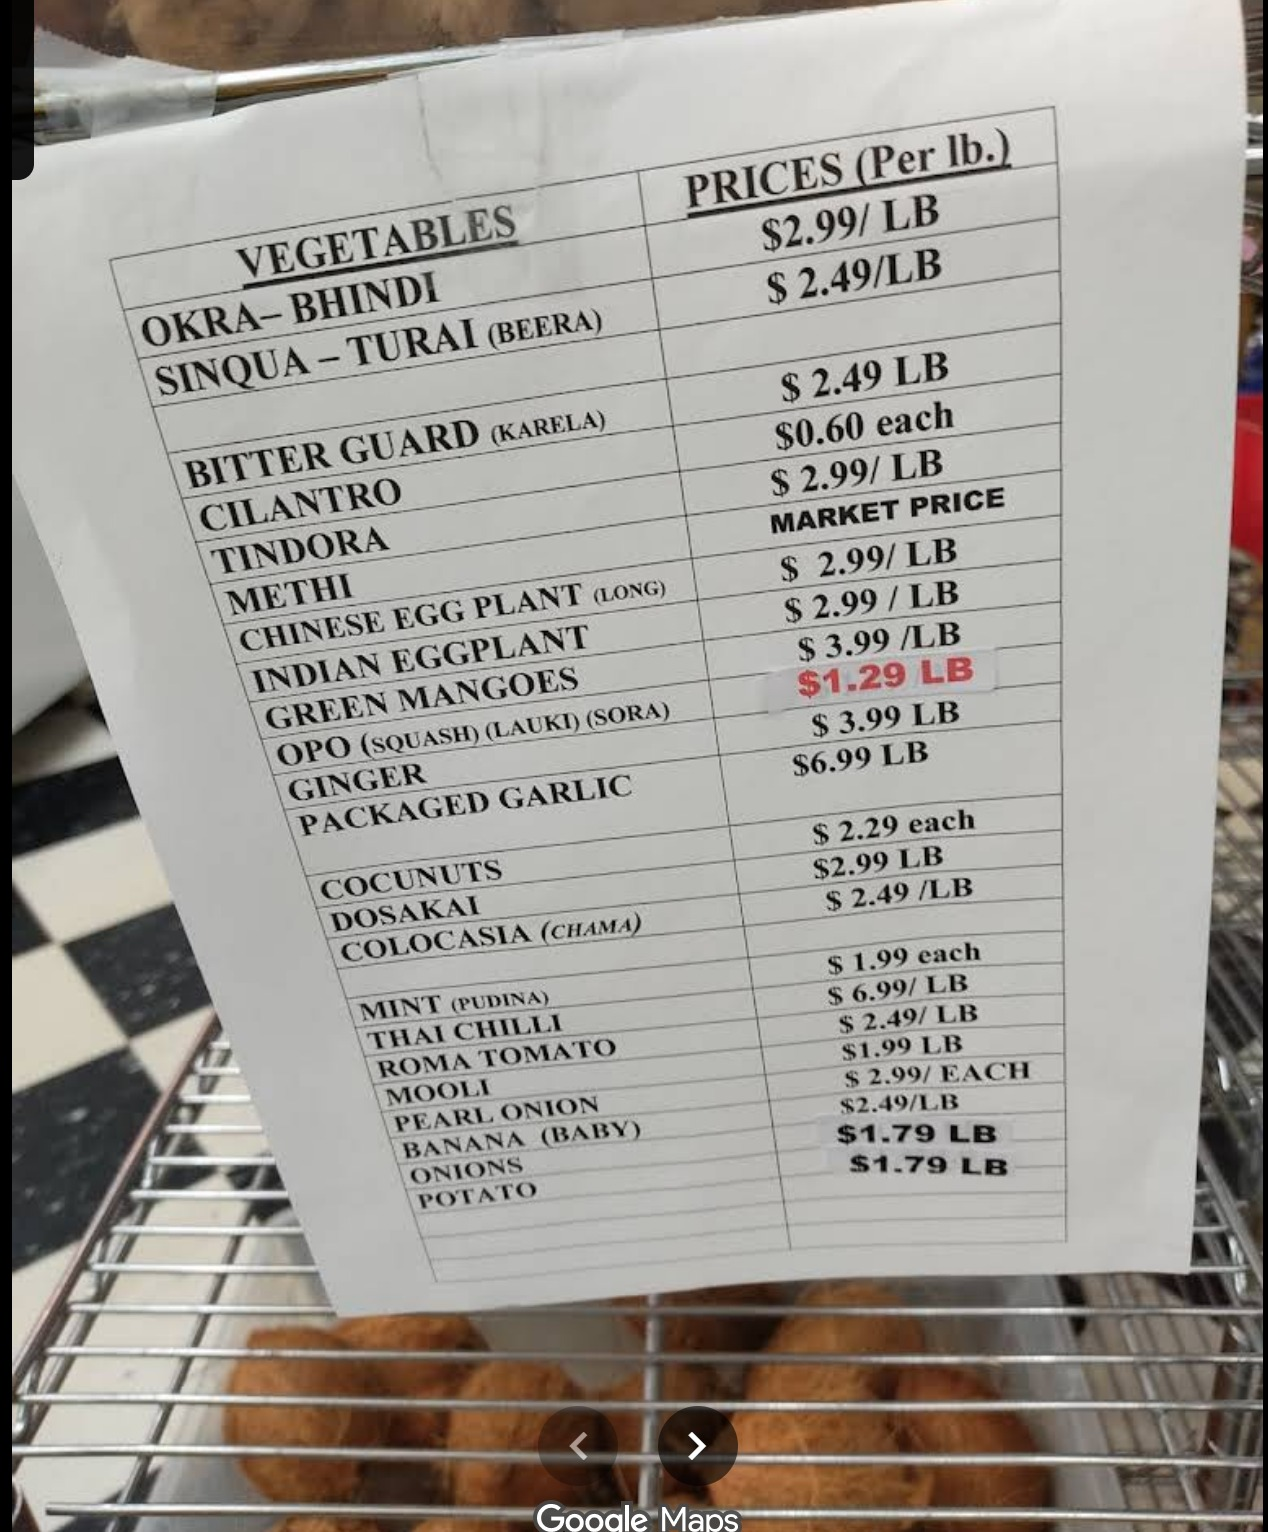 VEGETABLES PRICES (Per lb.)
OKRA– BHINDI $2.99/ LB
SINQUA – TURAI (BEERA) $ 2.49/LB
BITTER GUARD (KARELA) $ 2.49 LB
CILANTRO $0.60 each
TINDORA $ 2.99/ LB
METHI MARKET PRICE
CHINESE EGG PLANT (LONG) $ 2.99/ LB
INDIAN EGGPLANT $ 2.99 / LB
GREEN MANGOES $ 3.99 /LB
OPO (SQUASH) (LAUKI) (SORA) $1.29 LB
GINGER $ 3.99 LB
PACKAGED GARLIC $6.99 LB
COCUNUTS $ 2.29 each
DOSAKAI $2.99 LB
COLOCASIA (CHAMA) $ 2.49 /LB
MINT (PUDINA) $ 1.99 each
THAI CHILLI $ 6.99/ LB
ROMA TOMATO $ 2.49/ LB
MOOLI $1.99 LB
PEARL ONION $ 2.99/ EACH
BANANA (BABY) $2.49/LB
ONIONS $1.79 LB
POTATO $1.79 LB
Google Maps